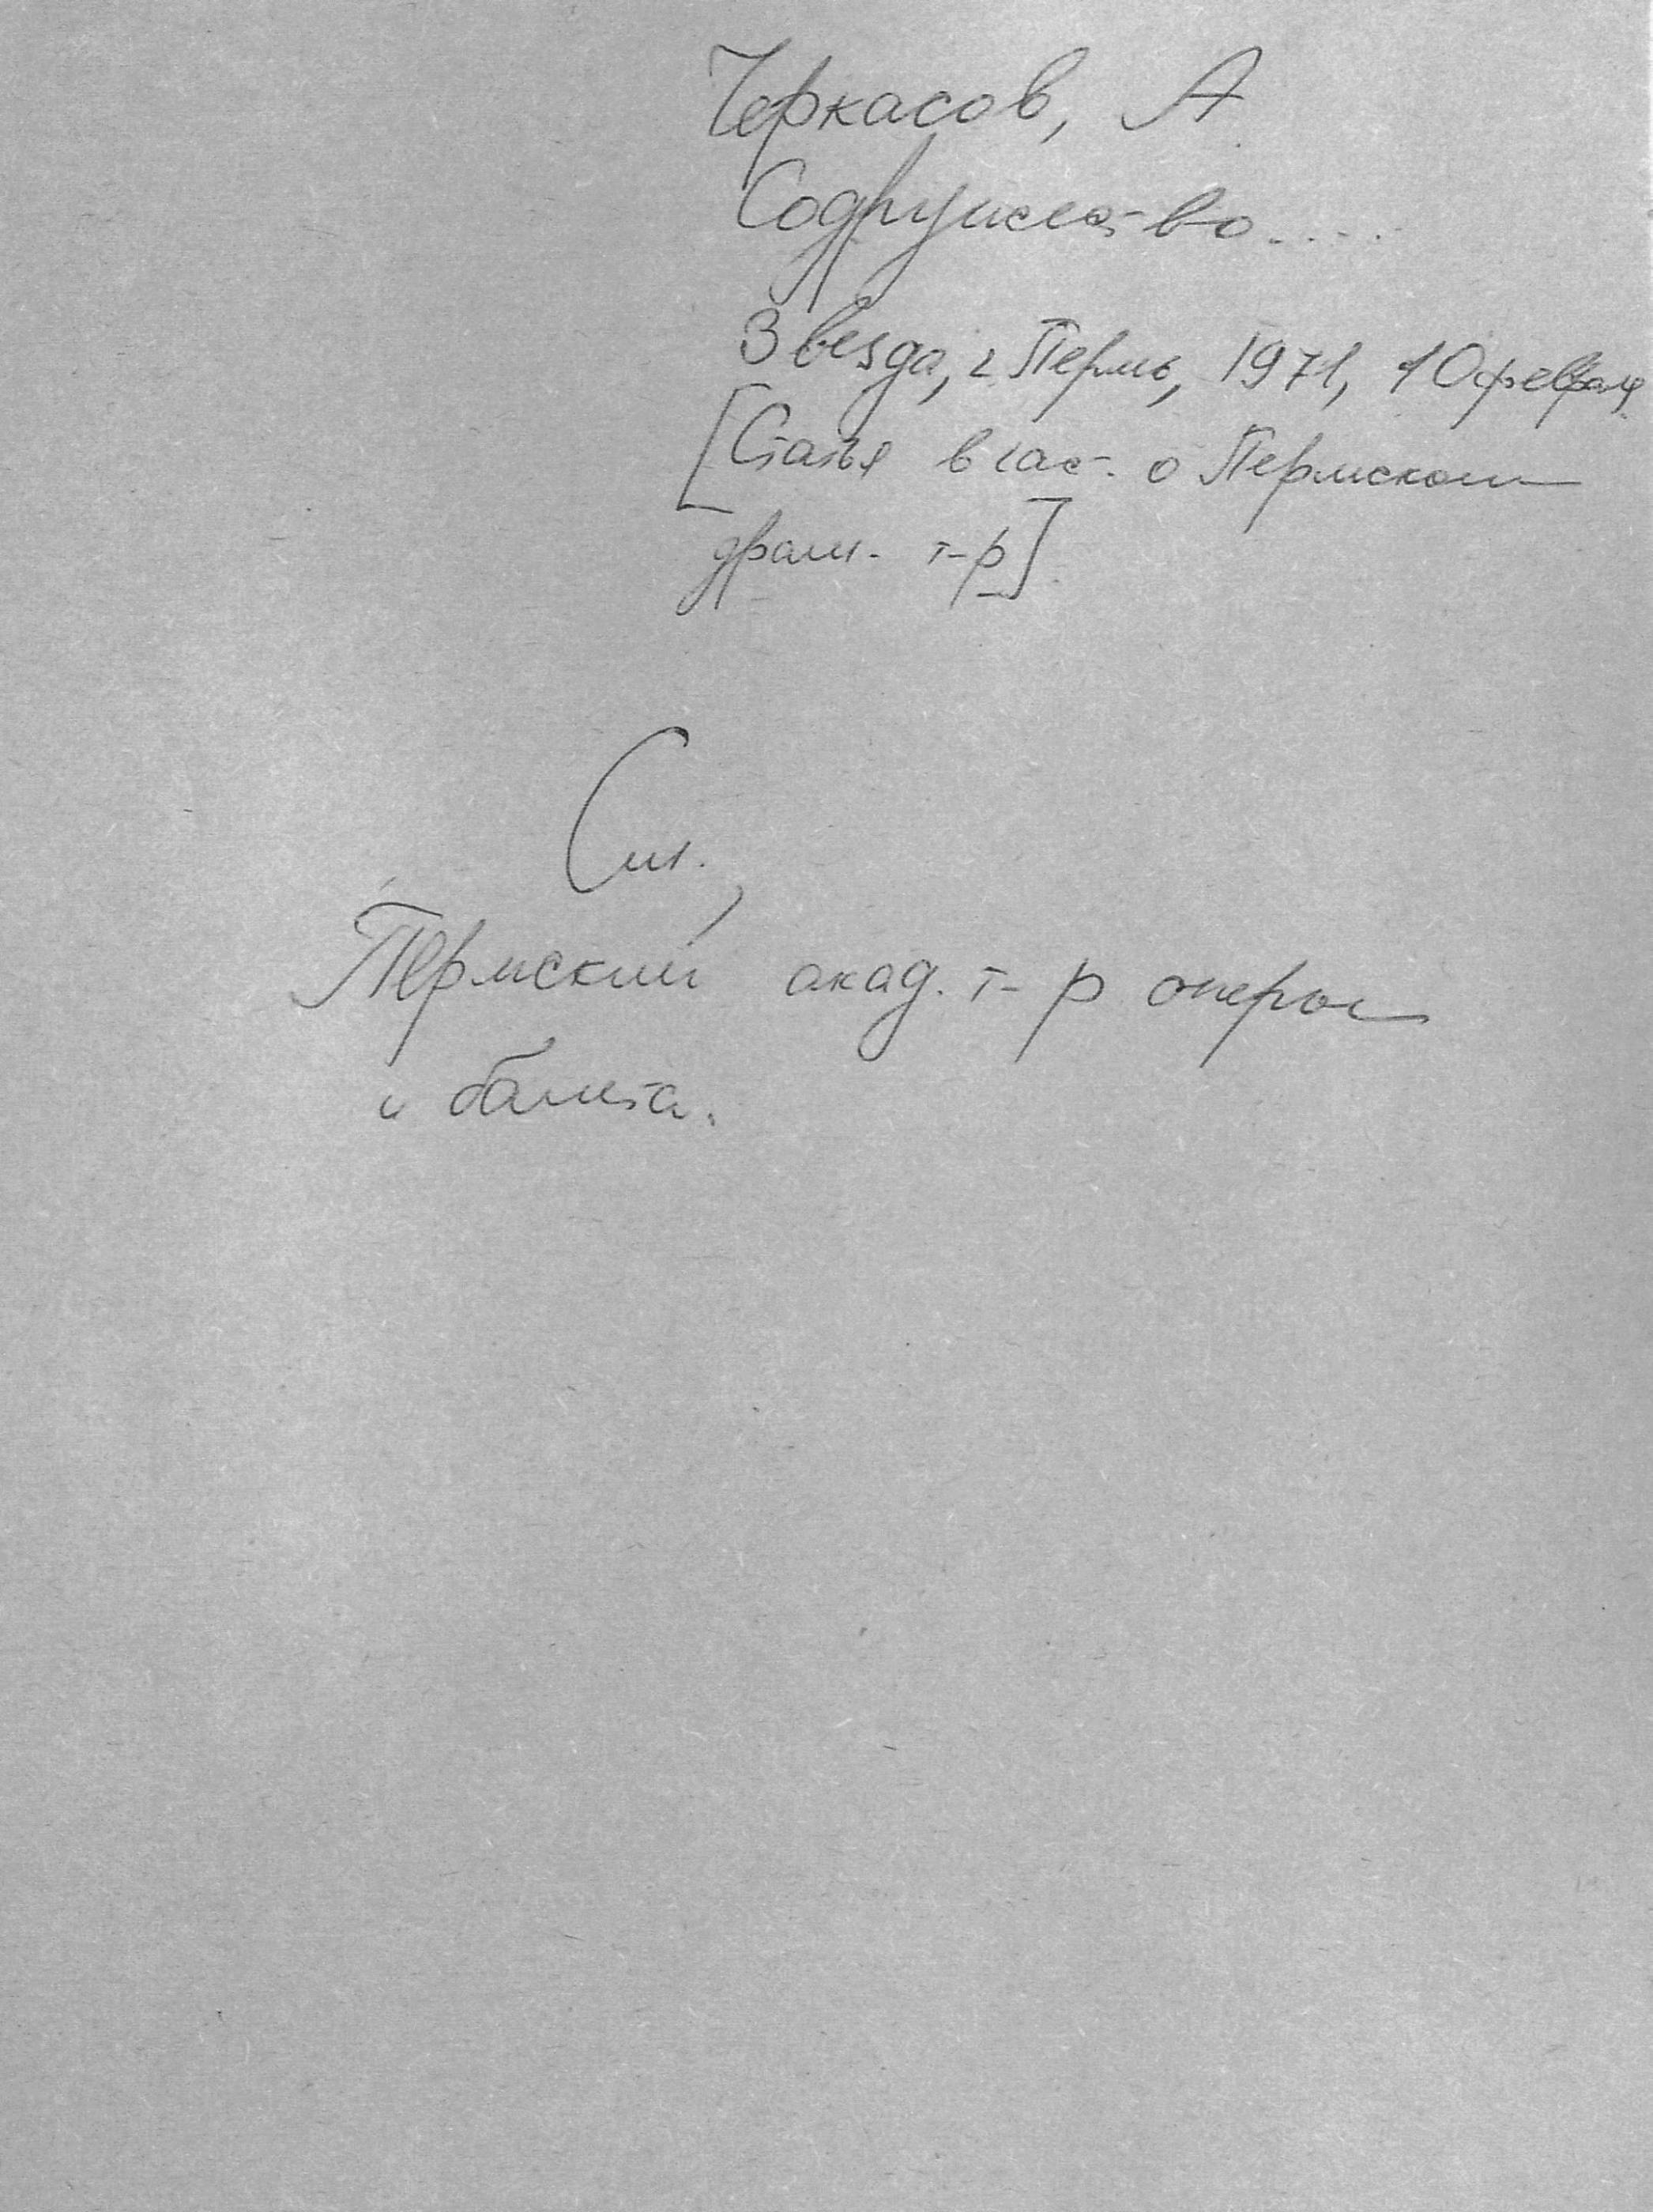 Черкасов, А.
Содружество....
Звезда, г. Пермь, 1971, 10 февраля
[Статья в час. о Пермском
драм. т-р].
См.,
Пермский акад. т-р оперы
и балета.